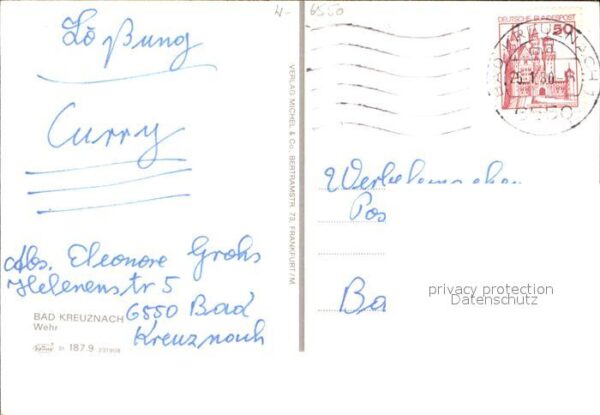 W- 6550
Lößung
Curry
Abs. Eleonore Grohs
Helenenstr 5
6550 Bad
Kreuznach
BAD KREUZNACH
Wehr
187.9
VERLAG MICHEL & Co., BERTRAMSTR. 73, FRANKFURT/M.
DEUTSCHE BUNDESPOST
50
BAD KREUZNACH 1
6550
Pos
Ba
privacy protection
Datenschutz